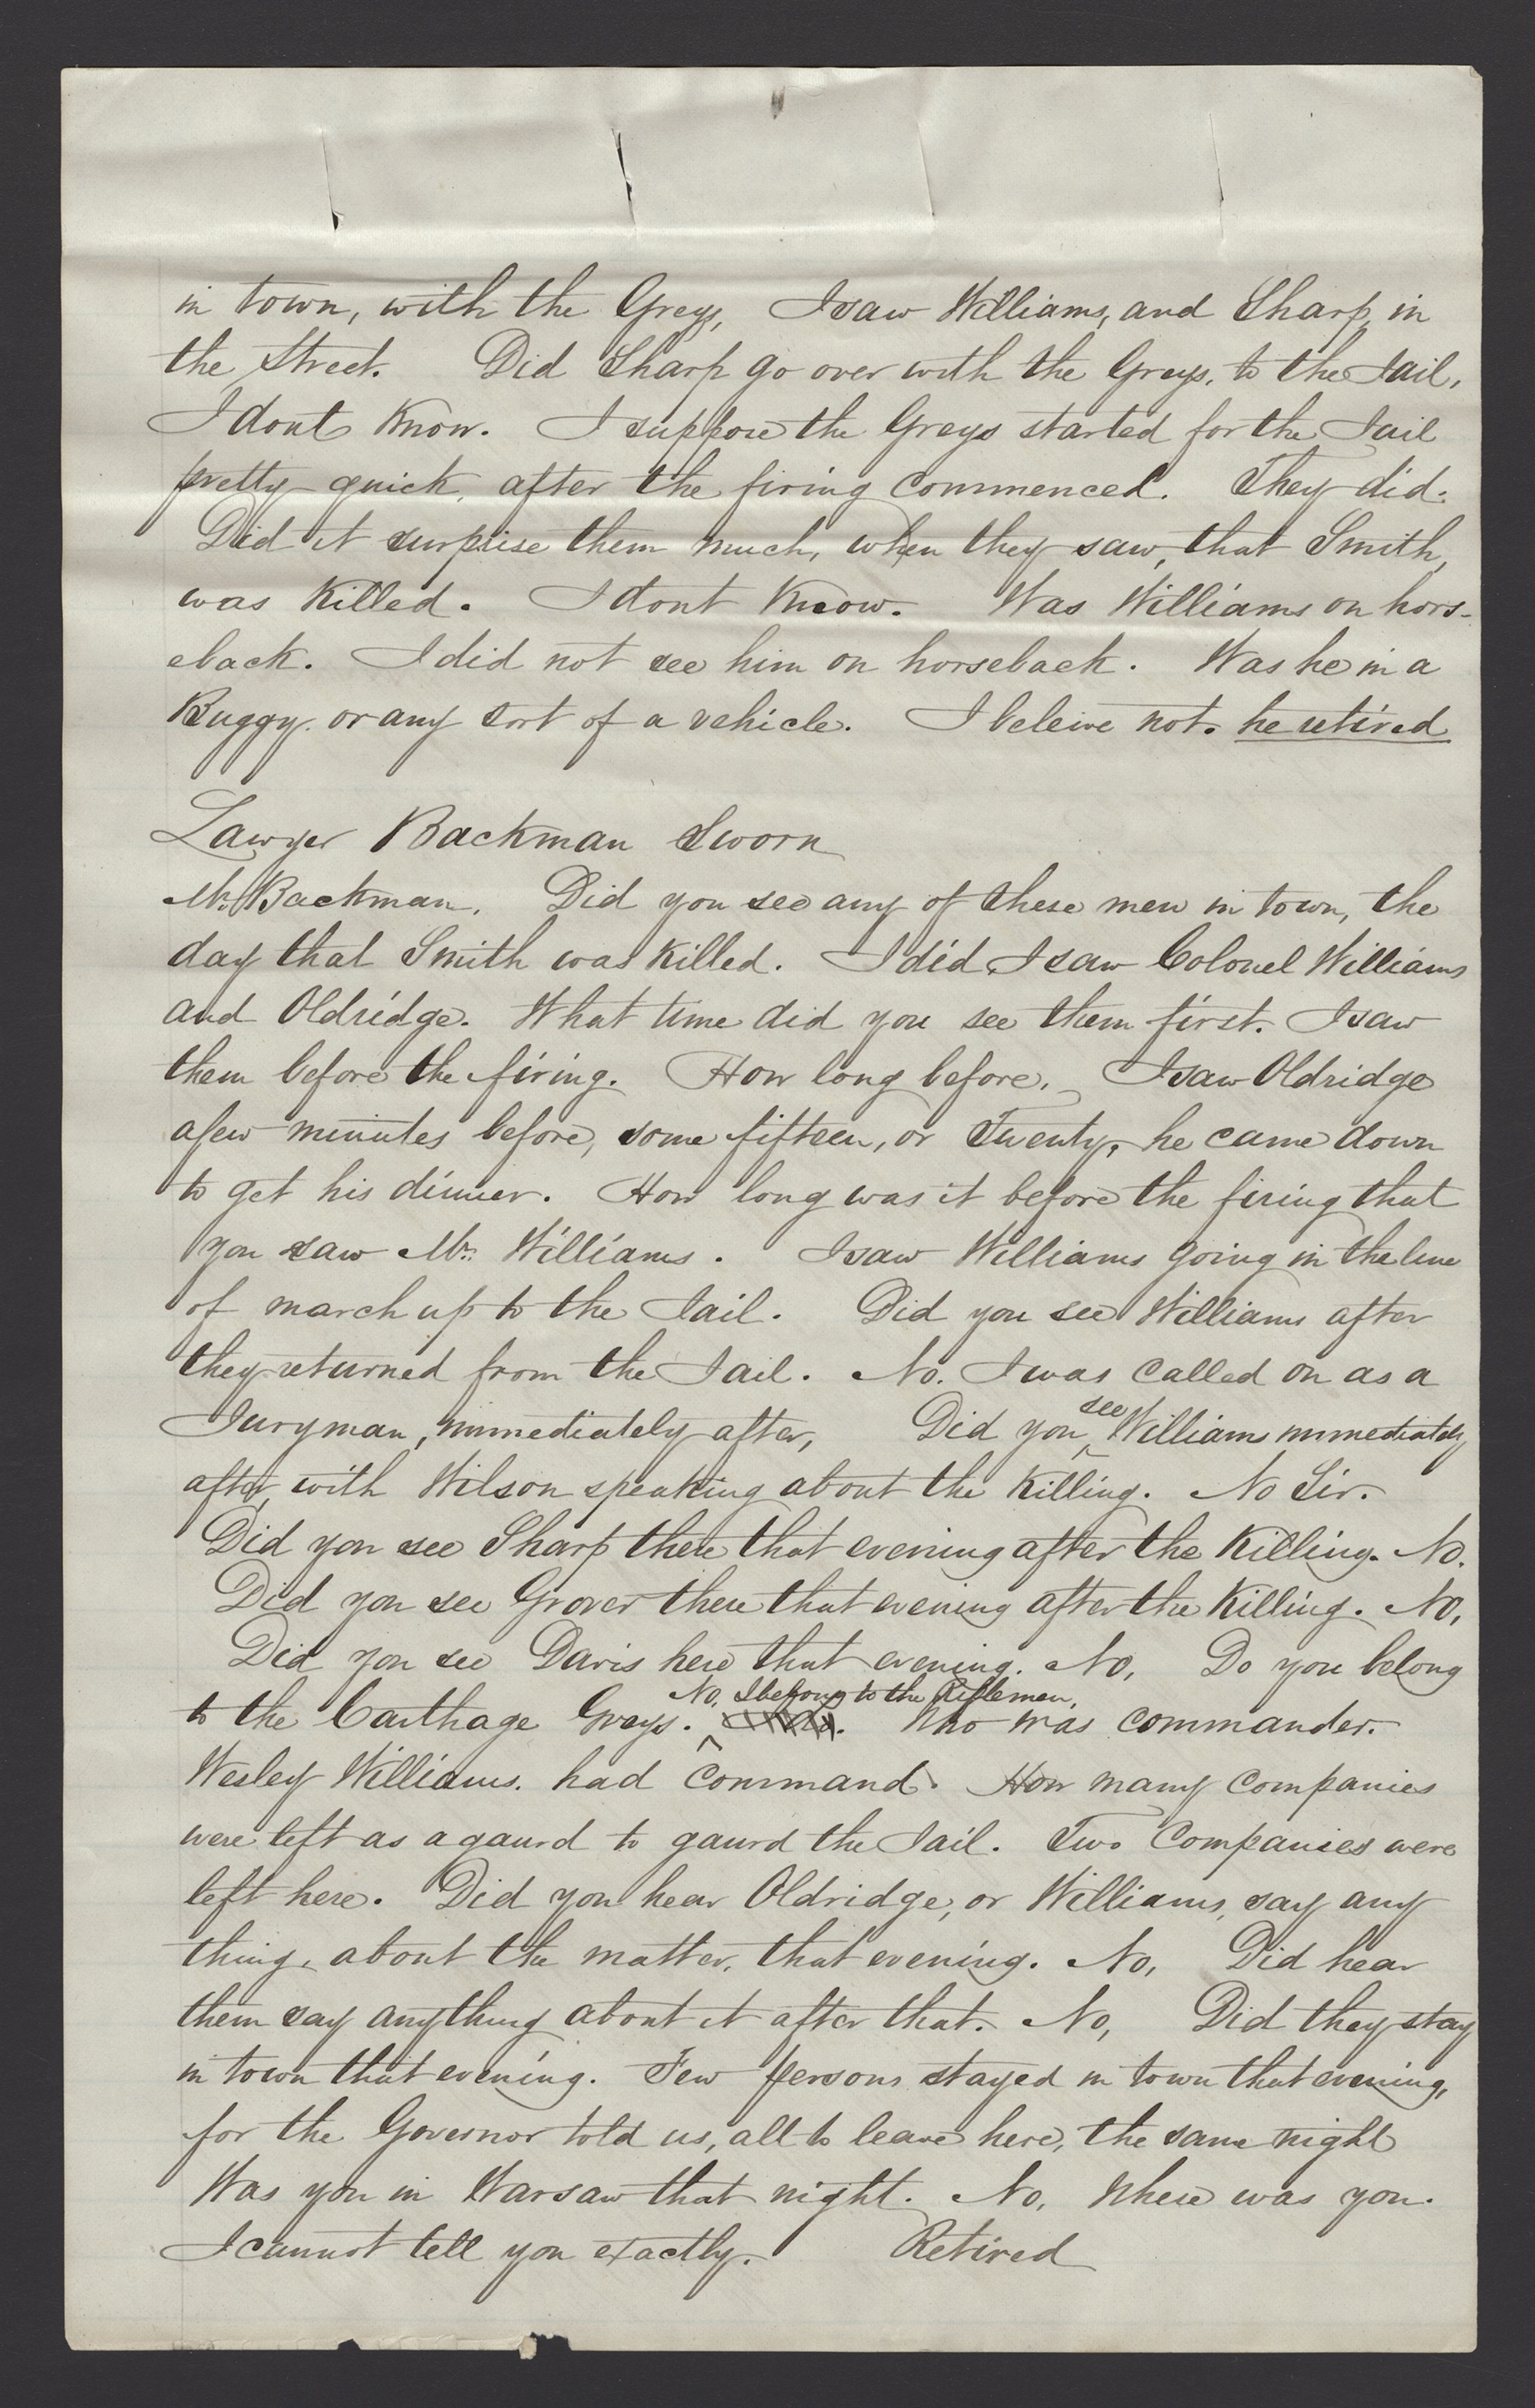 in town, with the Greys, I saw Williams, and Sharp, in
the Street. Did Sharp go over with the Greys, to the Jail,
I dont Know. I suppose the Greys started for the Jail
pretty quick, after the firing commenced. They did.
Did it surprise them much, when they saw, that Smith,
was Killed. I dont Know. Was Williams on hors-
eback. I did not see him on horseback. Was he in a
Buggy. or any sort of a vehicle. I beleive not. he retired
Lawyer Backman Sworn
Mr. Backman. Did you see any of these men in town, the
day that Smith was Killed. I did, I saw Colonel Williams
and Oldridge. What time did you see them first. I saw
them before the firing. How long before. I saw Oldridge
a few minutes before, some fifteen, or Twenty, he came down
to get his dinner. How long was it before the firing that
you saw Mr. Williams. I saw Williams going in the line
of march up to the Jail. Did you see Williams after
they returned from the Jail. No. I was called on as a
Juryman, immediately after, Did you see Williams immediately
after, with Wilson speaking about the Killing. No Sir.
Did you see Sharp there that evening after the Killing. No.
Did you see Grover there that evening after the Killing. No,
Did you see Davis here that evening. No, Do you belong
to the Carthage Greys. No, I belong to the Riflemen. Who was commander.
Wesley Williams. had command. How many companies
were left as a gaurd to gaurd the Jail. Two Companies were
left here. Did you hear Oldridge, or Williams, say any
thing, about the matter, that evening. No, Did hear
them say anything about it after that. No, Did they stay
in town that evening. Few persons stayed in town that evening,
for the Governor told us, all to leave here, the same night
Was you in Warsaw that night. No, Where was you.
I cannot tell you exactly. Retired